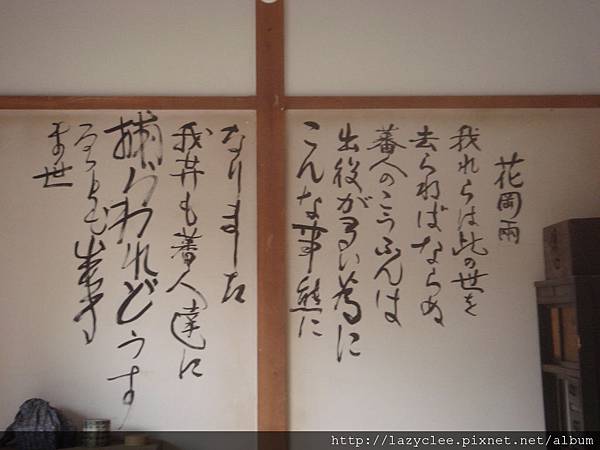 花岡兩
我れらは此の世を
去らねばならぬ
蕃人のこうふんは
出役が多い為に
こんな事態に
なりました
我等も蕃人達に
捕らわれどうす
ることも出来
ま世
http://lazyclee.pixnet.net/album